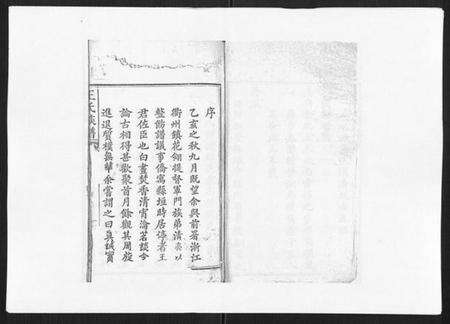 序
乙亥之秋九月既望余與前署浙江
衢州鎮花翎提督軍門族弟濟桑以
整飭譜議事僑寓縣垣時居停者王
君佐臣也白晝焚香清宵淪茗談今
論古相得甚歡聚首月餘觀其周旋
進退質樸無華余嘗謂之曰真誠實
王氏族譜